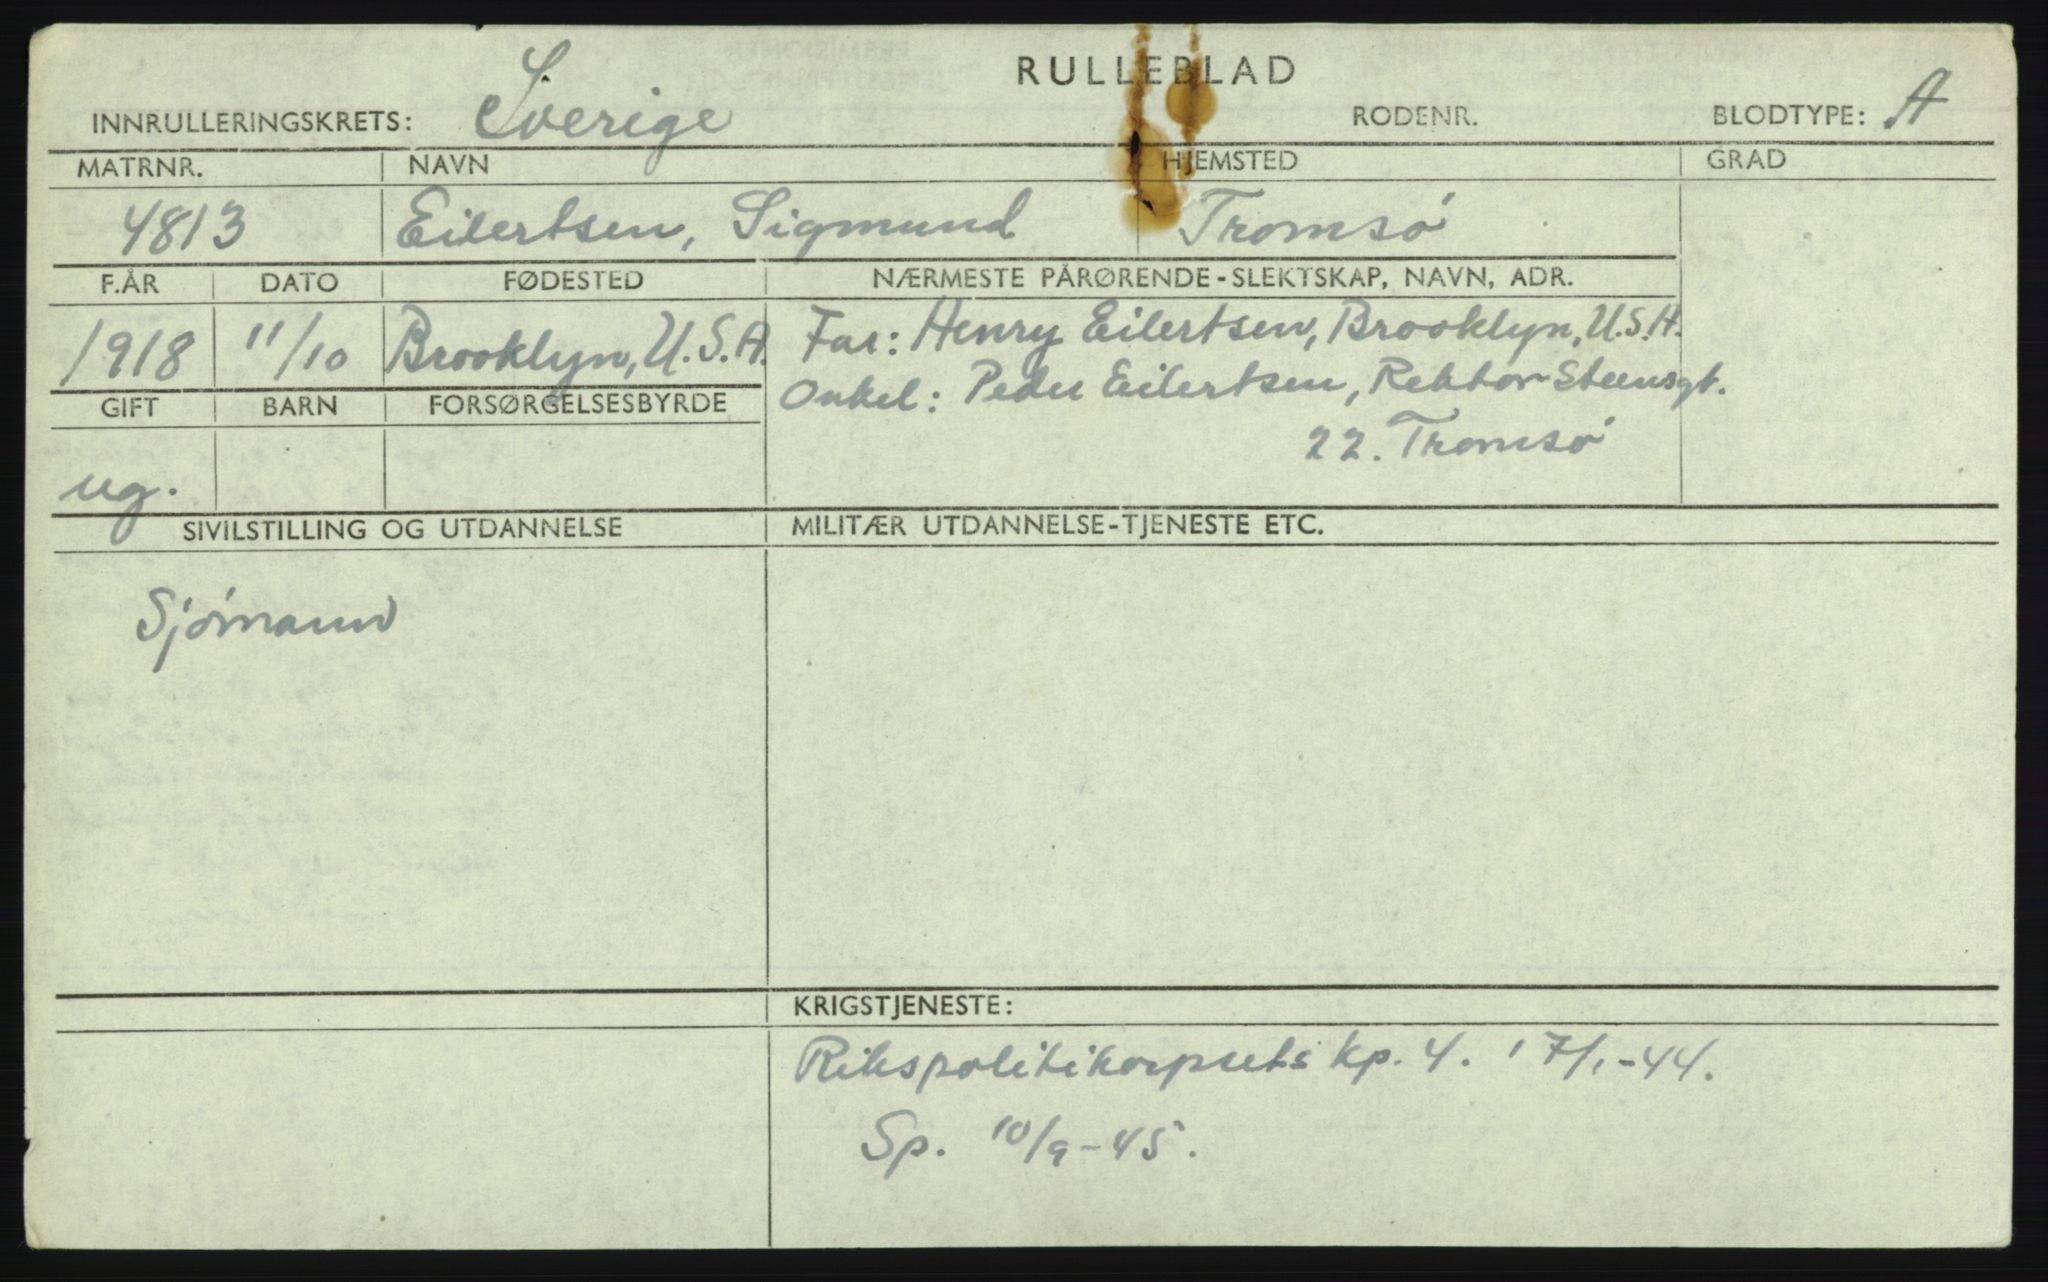 RULLEBLAD
INNRULLERINGSKRETS: Sverige RODENR. BLODTYPE: A
MATRNR. NAVN HJEMSTED GRAD
4813 Eilertsen, Sigmund Tromsø
F.ÅR DATO FØDESTED NÆRMESTE PÅRØRENDE-SLEKTSKAP, NAVN, ADR.
1918 11/10 Brooklyn, U.S.A. Far: Henry Eilertsen, Brooklyn, U.S.A.
GIFT BARN FORSØRGELSESBYRDE Onkel: Peder Eilertsen, Rektor Steensgt.
22. Tromsø
ug.
SIVILSTILLING OG UTDANNELSE MILITÆR UTDANNELSE-TJENESTE ETC.
Sjømann
KRIGSTJENESTE:
Rikspolitikorpsets kp. 4. 17/1-44.
Sp. 10/9-45.